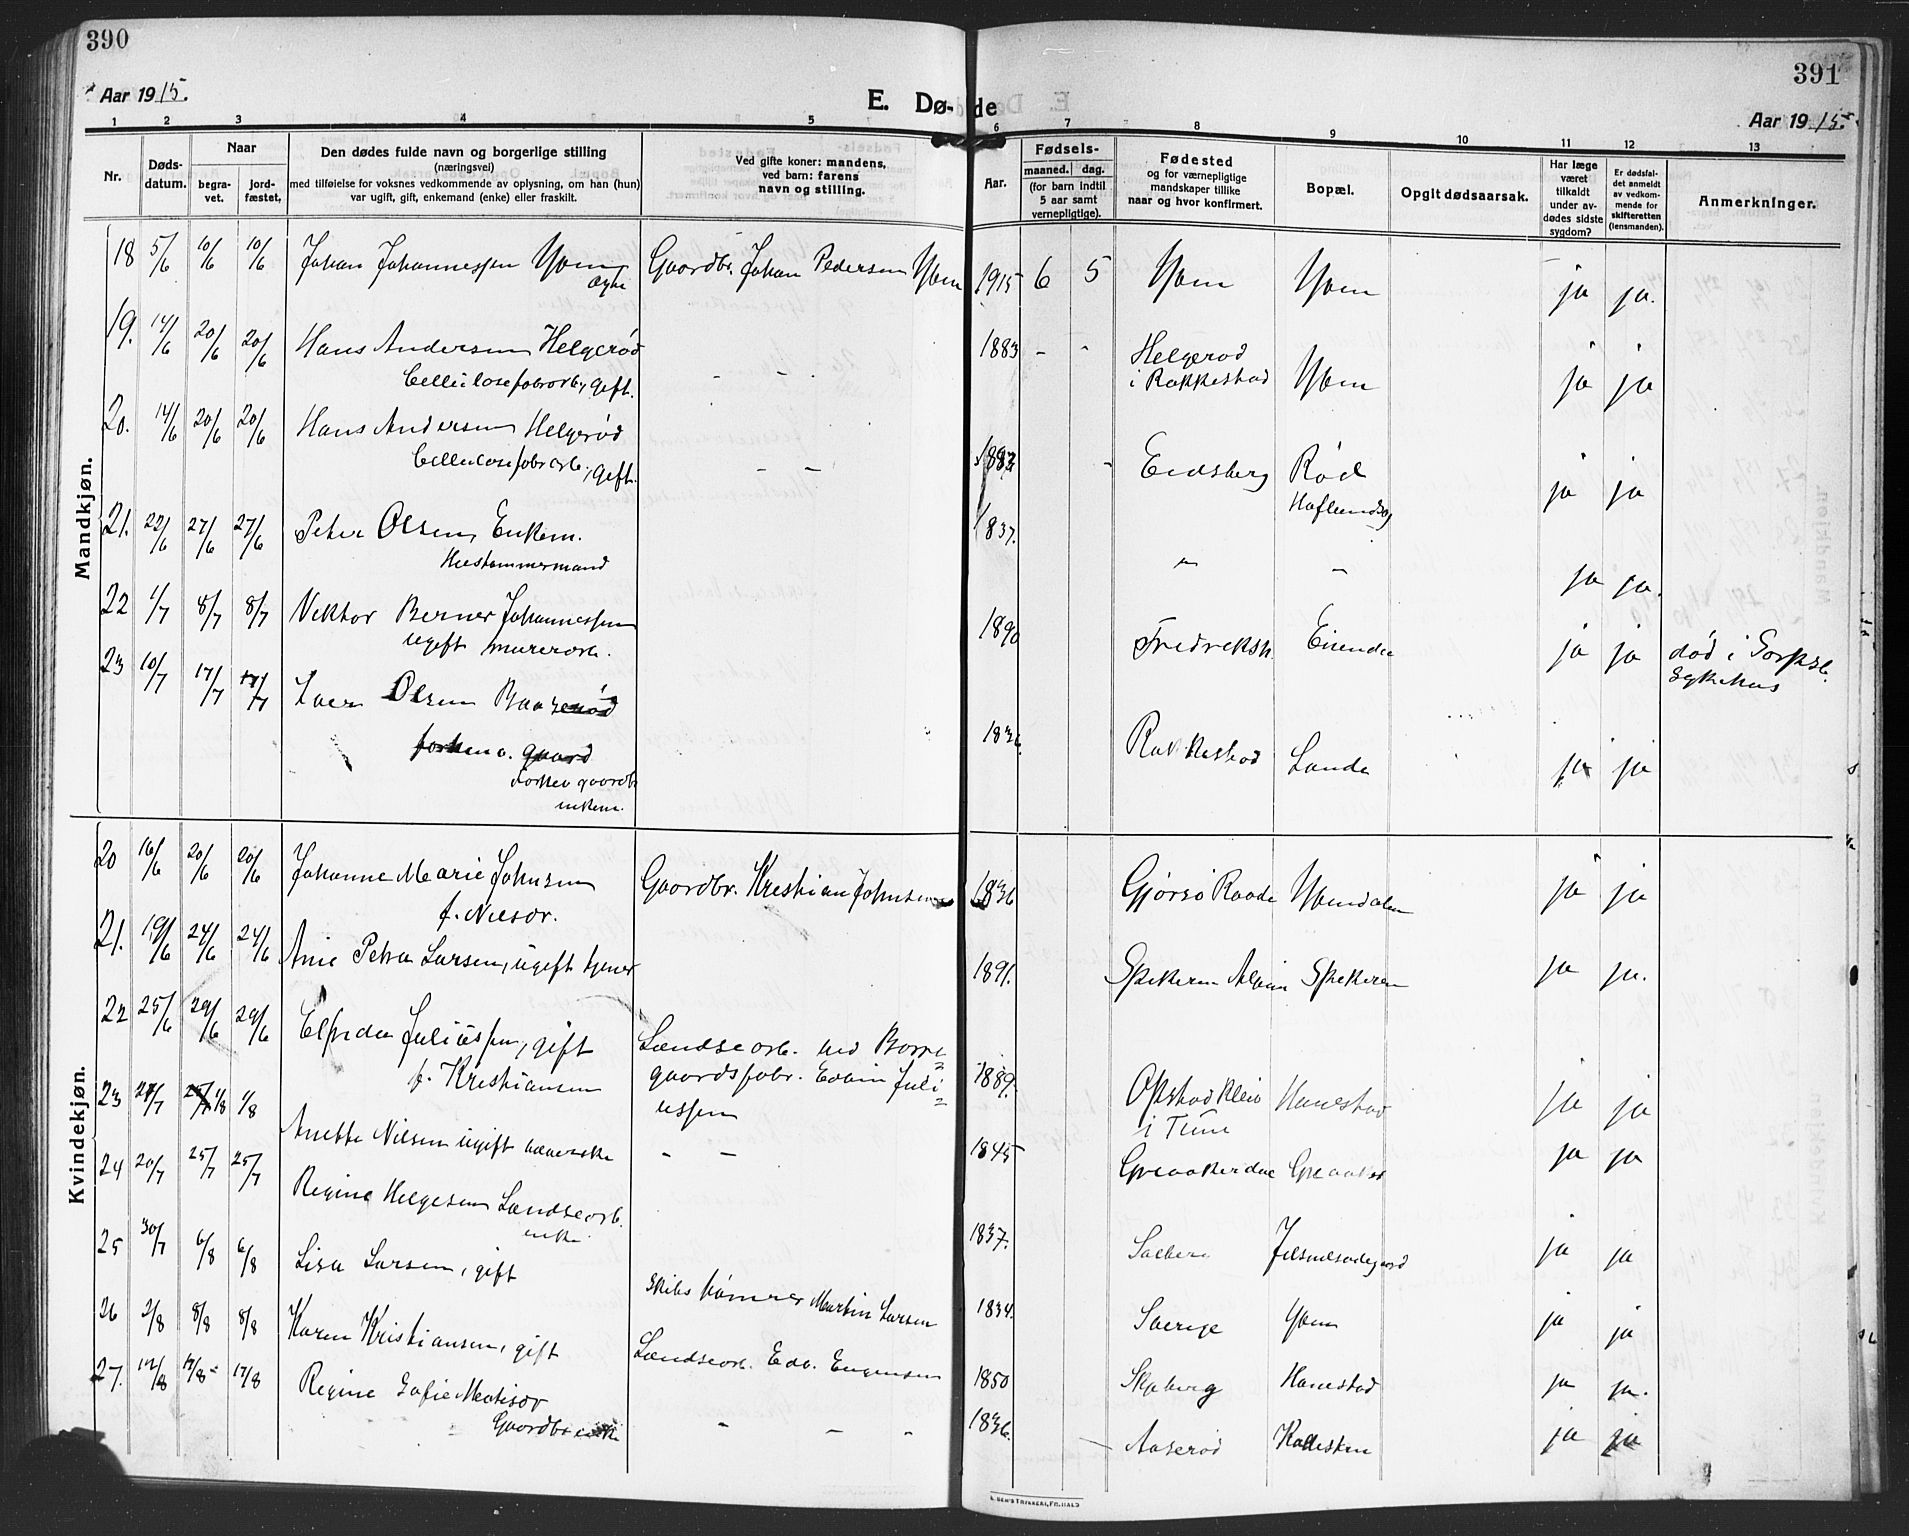 390
391
Aar 1915.
E. Dø-
de
Aar 1915.
1 2 3 4 5 6 7 8 9 10 11 12 13
Nr.
Døds-
datum.
Naar
begra-
vet.
jord-
fæstet,
Den dødes fulde navn og borgerlige stilling
(næringsvei)
med tilføielse for voksnes vedkommende av oplysning, om han (hun)
var ugift, gift, enkemand (enke) eller fraskilt.
Ved gifte koner: mandens,
ved barn: farens
navn og stilling.
Aar.
Fødsels-
maaned. dag.
(for barn indtil
5 aar samt
vernepligtige).
Fødested
og for værnepligtige
mandskaper tillike
naar og hvor konfirmert.
Bopæl.
Opgit dødsaarsak.
Har læge
været
tilkaldt
under av-
dødes sidste
sygdom?
Er dødsfal-
det anmeldt
av vedkom-
mende for
skifteretten
(lensmanden).
Anmerkninger.
Mandkjøn.
18 5/6 10/6 10/6 Johan Johannessen Yven Gaardbr. Johan Pedersen Yven 1915 6 5 Yven Yven ja ja.
ægte
19. 14/6 20/6 20/6 Hans Andersen Helgerød 1883 - - Helgerød
Cellulosefabarb, gift. - - i Rakkestad Yven ja ja
20. 14/6 20/6 20/6 Hans Andersen Helgerød
Cellulosefabrarb., gift. - - Eidsberg Rød ja ja
Haflundsg
21. 22/6 27/6 27/6 Peter Olsen, Enkem. 1837.
Hustømmermand " - ja ja.
22 1/7 8/7 8/7 Viktor Berner Johannessen 1890 Fredriksh. ja ja død i Sarpsb.
ugift murerarb. Sykehus
23 10/7 17/7 17/7 Lars Olsen 1836. Rakkestad Lande ja ja
gaard
Forhen gaardbr
enkem.
Kvindekjøn.
20 16/6 20/6 20/6 Johanne Marie Johnsen Gaardbr. Kristian Johnsen 1836 Gjørsø Raade Yvendalen ja ja
f. Nilsdr.
21. 19/6 24/6 24/6 Anne Petra Larsen, ugift tjener 1891. Spekeren Spekeren ja ja.
22 25/6 29/6 29/6 Elfrida Juliussen, gift Landsearb. ved Borre=
f. Kristiansen gaardsfabr. Edvin Juli= 1889. Opstad Kleiv Hanestad ja ja
ussen i Tune
23 27/7 1/8 1/8 Anette Nilsen ugift væverske - - 1845 Greaaker Greaaker ja ja
24 20/7 25/7 25/7 Regine Helgesen Landsearb. 1837. ja ja
enke.
25 30/7 6/8 6/8 Lisa Larsen, gift Skibstømrer Martin Larsen 1834. Sverige Yven ja ja
26 2/8 8/8 8/8 Karen Kristiansen, gift Landsearb. Edv. Eugensen 1850 Skjeberg Hanestad ja ja.
27. 12/8 17/8 17/8 Regine Sofie Mathisdr - - - 1836. Aaserød ja ja
Gaardbr enke